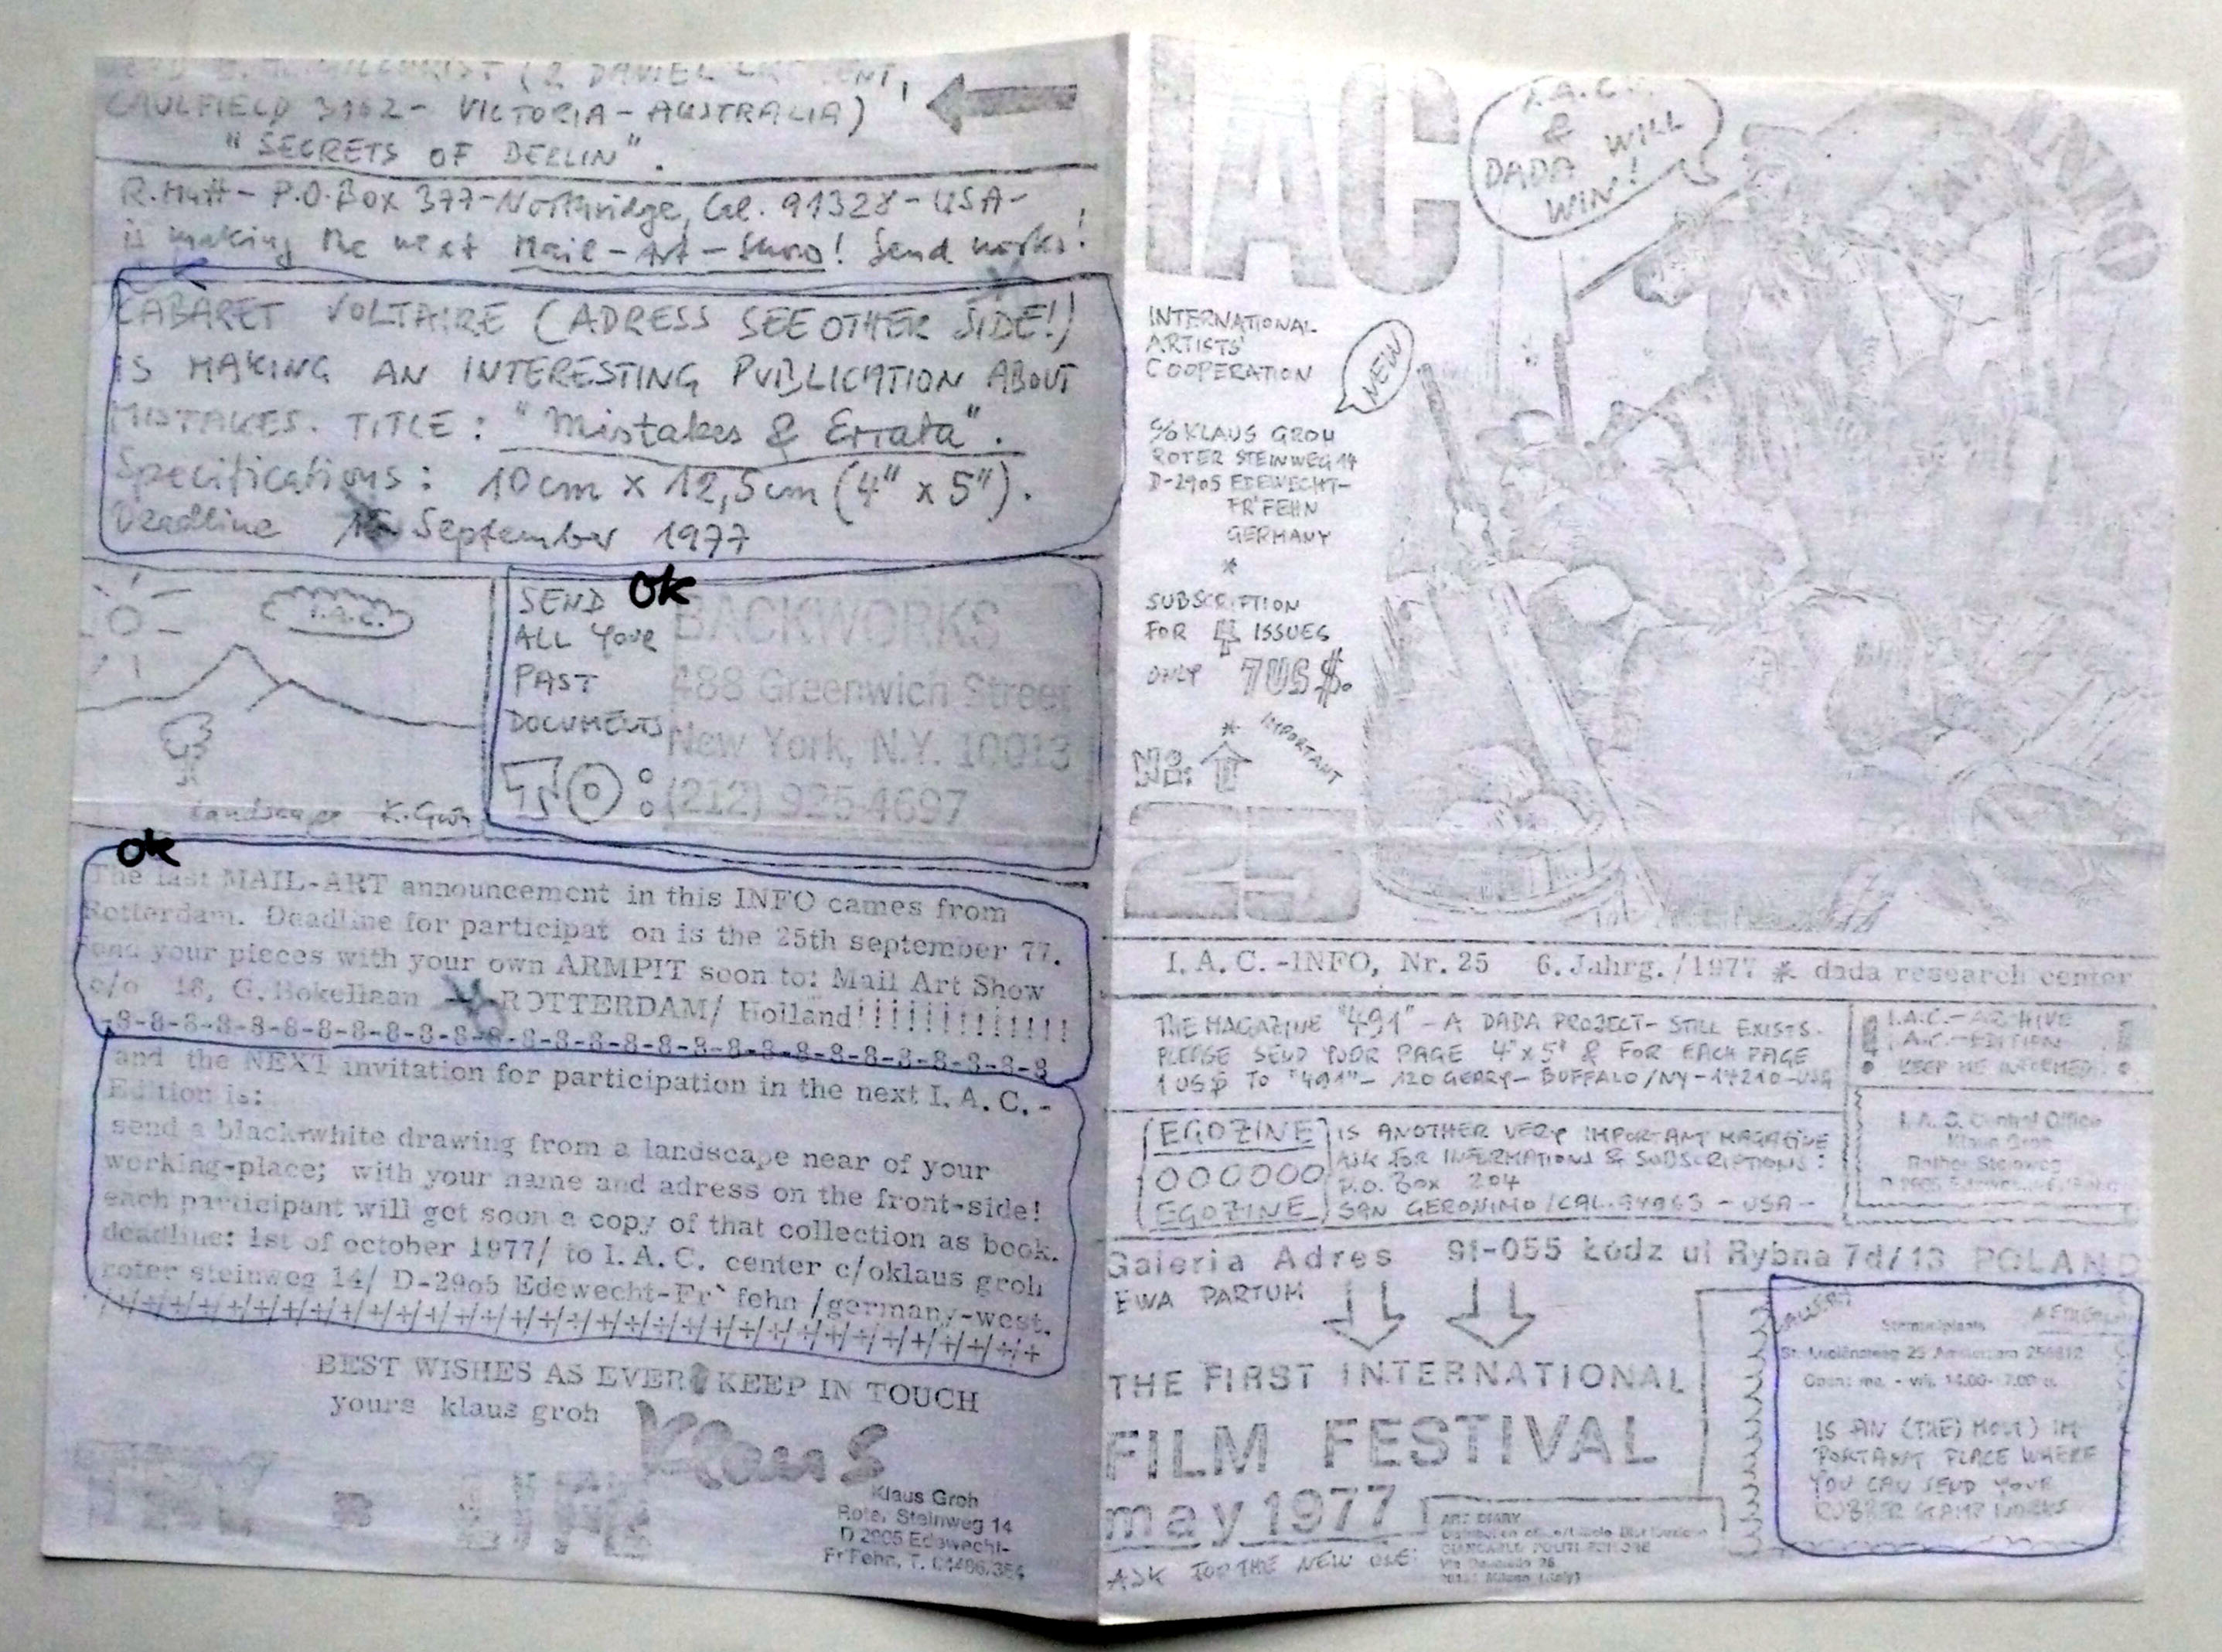 CAULFIELD 3162- VICTORIA-AUSTRALIA)
"SECRETS OF BERLIN".
R.Mutt- P.O.Box 377-Northridge, Cal. 91328-USA-
is making the next Mail-Art-Show! Send works!
CABARET VOLTAIRE (ADRESS SEE OTHER SIDE!)
IS MAKING AN INTERESTING PUBLICATION ABOUT
MISTAKES. TITLE: "Mistakes & Errata".
Specifications: 10cm x 12,5cm (4" x 5").
Deadline 15 September 1977
I.A.C.
Landscape K.Groh
ok
SEND
ALL YOUR
PAST
DOCUMENTS
TO:
BACKWORKS
488 Greenwich Street
New York, N.Y. 10013
(212) 925 4697
ok
The last MAIL-ART announcement in this INFO cames from
Rotterdam. Deadline for participat on is the 25th september 77.
send your pieces with your own ARMPIT soon to: Mail Art Show
c/o 18, G. Bokellaan ROTTERDAM/ Holland!!!!!!!!!!!!!
-8-8-8-8-8-8-8-8-8-8-8-8-8-8-8-8-8-8-8-8-8-8-8-8-8-8-8
and the NEXT invitation for participation in the next I. A. C. -
Edition is:
send a black-white drawing from a landscape near of your
working-place; with your name and adress on the front-side!
each participant will get soon a copy of that collection as book.
deadline: 1st of october 1977/ to I. A. C. center c/oklaus groh
roter steinweg 14/ D-29o5 Edewecht-Fr`fehn /germany-west.
/+/+/+/+/+/+/+/+/+/+/+/+/+/+/+/+/+/+/+/+/+/+/+/+/+/+/+/+/+/+/+/+
BEST WISHES AS EVER KEEP IN TOUCH
yours klaus groh
Klaus
Klaus Groh
Roter Steinweg 14
D 2905 Edewecht-
Fr'Fehn, T. 04486/354
IAC
INFO
I.A.C.
&
DADA WILL
WIN!
INTERNATIONAL
ARTISTS'
COOPERATION
NEW
c/o KLAUS GROH
ROTER STEINWEG 14
D-2905 EDEWECHT-
FR'FEHN
GERMANY
*
SUBSCRIPTION
FOR 4 ISSUES
ONLY 7US$.
*
IMPORTANT
No:
25
I. A. C. -INFO, Nr. 25 6. Jahrg. /1977 * dada research center
THE MAGAZINE "491" - A DADA PROJECT- STILL EXISTS.
PLEASE SEND YOUR PAGE 4"x5" & FOR EACH PAGE
1 US$ TO "491"- 120 GEARY- BUFFALO/NY-14210-USA
I.A.C.-ARCHIVE
I.A.C.-EDITION
KEEP ME INFORMED!
EGOZINE
OOOOOO
EGOZINE
IS ANOTHER VERY IMPORTANT MAGAZINE
ASK FOR INFORMATIONS & SUBSCRIPTIONS:
P.O. BOX 204
SAN GERONIMO/CAL. 94963 - USA -
I. A. C. Central Office
Klaus Groh
Rother Steinweg
Galeria Adres 91-055 Łódź ul Rybna 7d/13 POLAND
EWA PARTUM
THE FIRST INTERNATIONAL
FILM FESTIVAL
may 1977
ASK FOR THE NEW ONE:
ART DIARY
GIANCARLO POLITI EDITORE
Stempelplaats
St. Luciënsteeg 25 Amsterdam
IS AN (THE) MOST) IM-
PORTANT PLACE WHERE
YOU CAN SEND YOUR
RUBBER STAMP WORKS